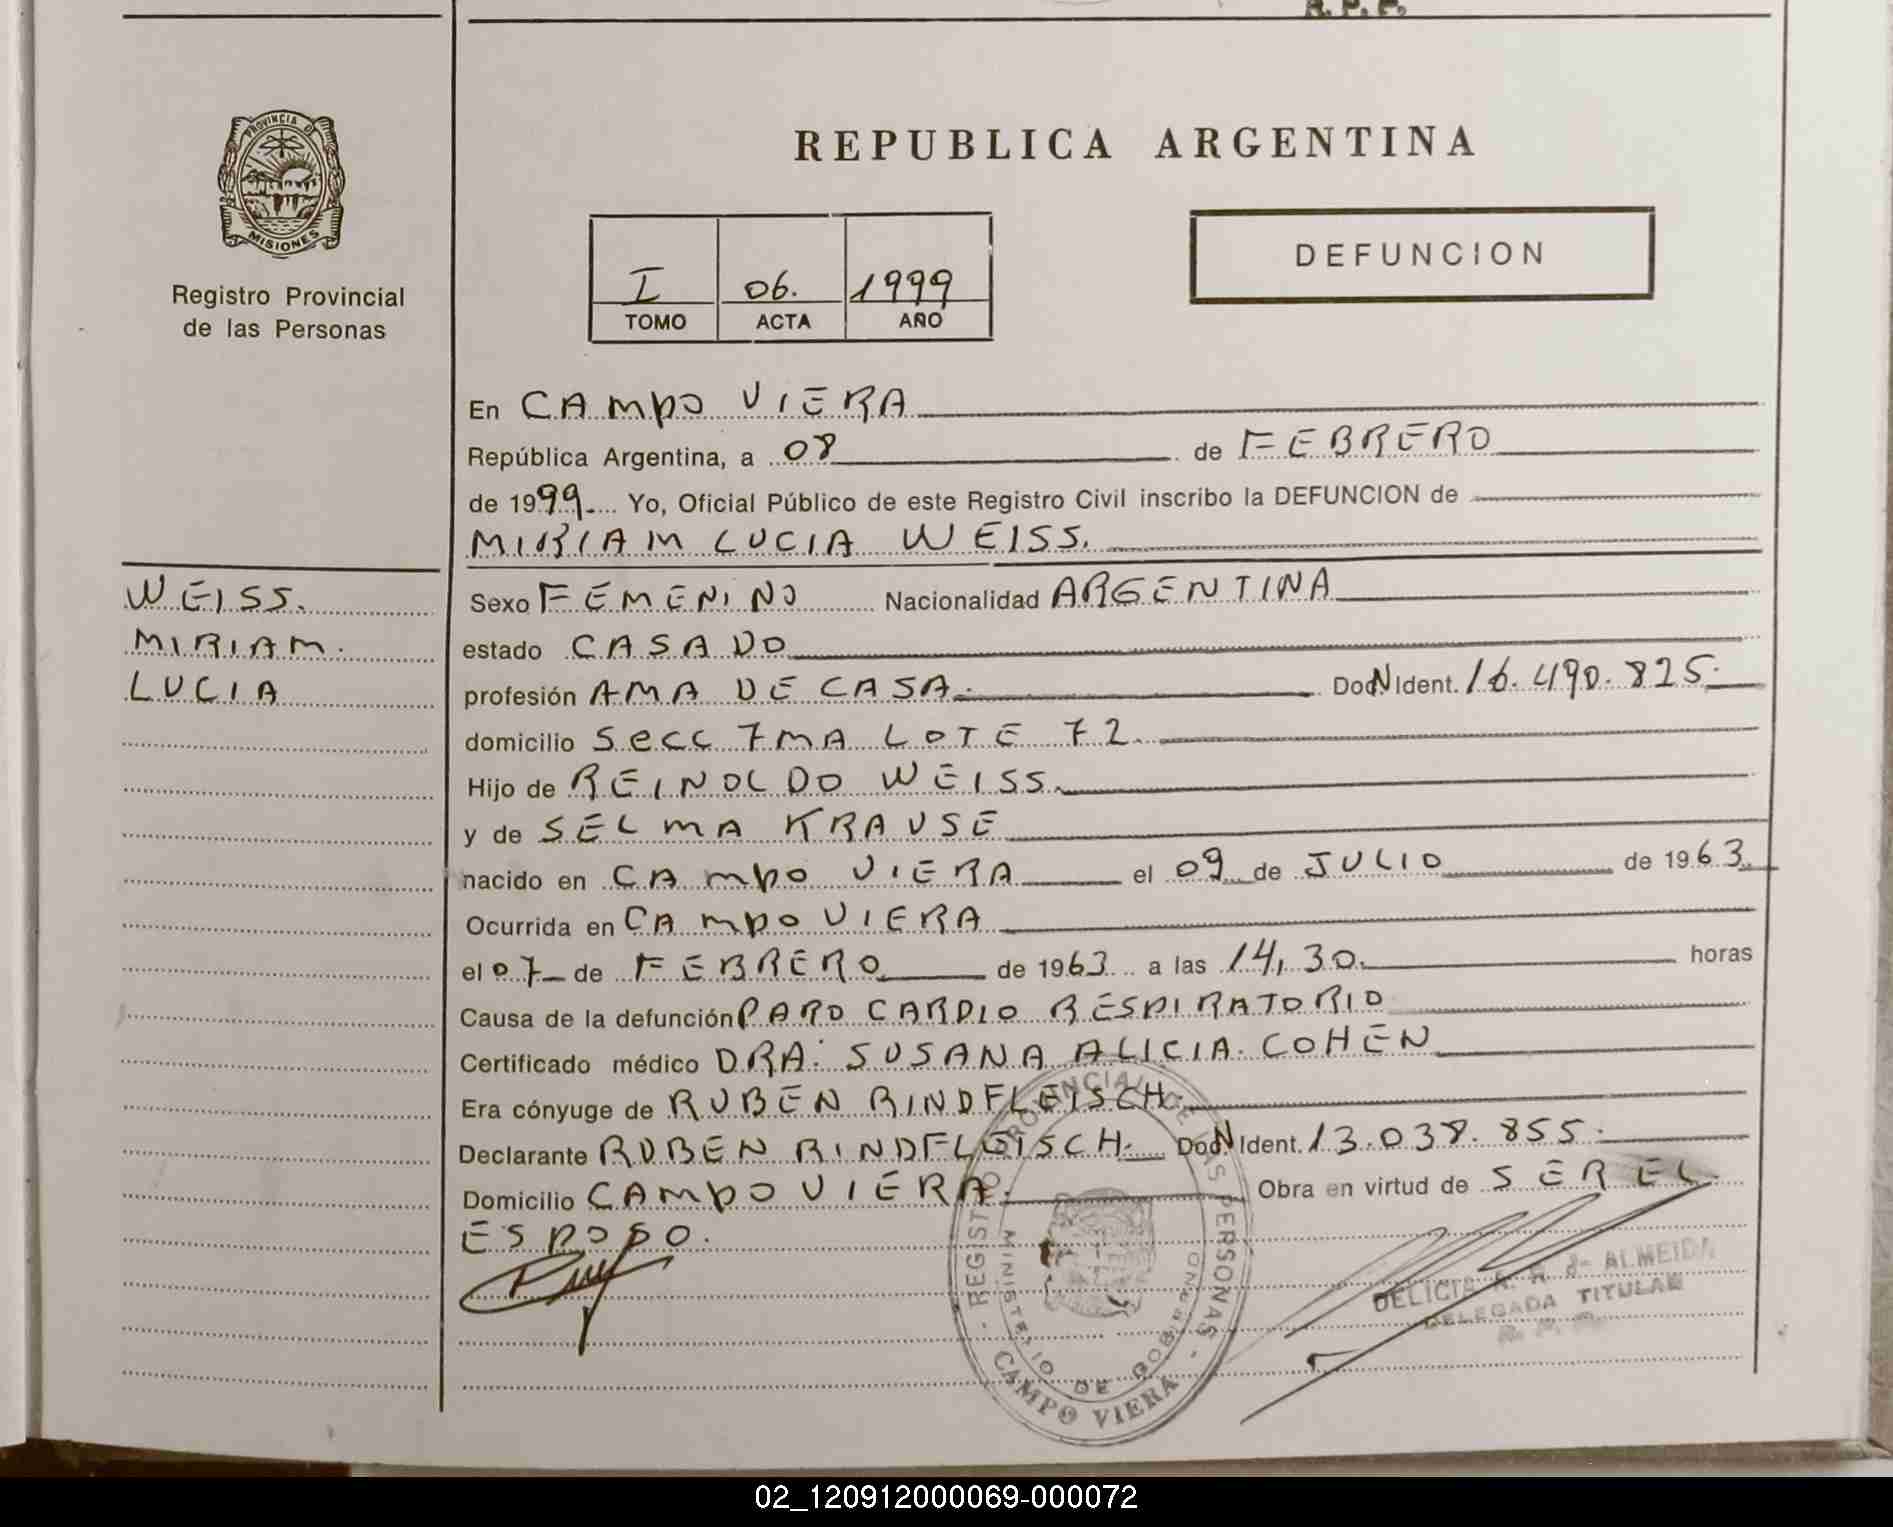 R. P. P.
PROVINCIA DE
MISIONES
Registro Provincial
de las Personas
REPUBLICA ARGENTINA
I 06. 1999
TOMO ACTA AÑO
DEFUNCION
En CAMPO VIERA
República Argentina, a 08 de FEBRERO
de 1999 Yo, Oficial Público de este Registro Civil inscribo la DEFUNCION de
MIRIAM LUCIA WEISS.
WEISS.
MIRIAM.
LUCIA
Sexo FEMENINO Nacionalidad ARGENTINA
estado CASADO
profesión AMA DE CASA. Doc N Ident. 16.490.825.
domicilio Secc 7MA LOTE 72.
Hijo de REINOLDO WEISS.
y de SELMA KRAUSE
nacido en CAMPO VIERA el 09 de JULIO de 1963.
Ocurrida en CAMPO VIERA
el 07 de FEBRERO de 1963 a las 14,30. horas
Causa de la defunción PARO CARDIO RESPIRATORIO
Certificado médico DRA: SUSANA ALICIA COHEN
Era cónyuge de RUBEN RINDFLEISCH.
Declarante RUBEN RINDFLEISCH. Doc N Ident. 13.038.855.
Domicilio CAMPO VIERA. Obra en virtud de SER EL
ESPOSO.
REGISTRO PROVINCIAL DE LAS PERSONAS
MINISTERIO DE GOBIERNO
CAMPO VIERA
DELICIA ALMEIDA
DELEGADA TITULAR
R. P. P.
02_120912000069-000072